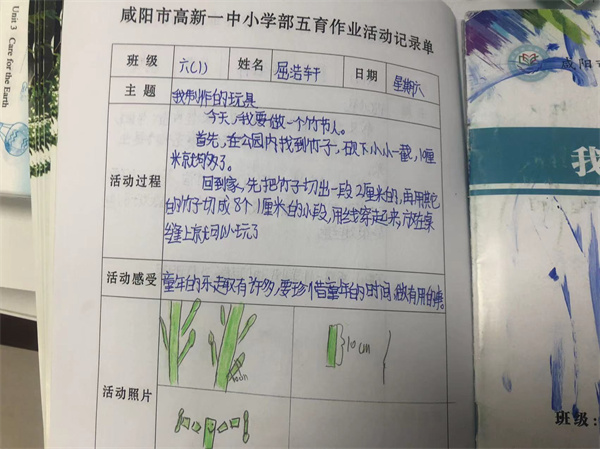 咸阳市高新一中小学部五育作业活动记录单
班级 六(1) 姓名 屈浩轩 日期 星期六
主题 我制作的玩具
活动过程
今天,我要做一个竹节人。
首先,在公园内找到竹子,砍下小小一截,10厘
米就够了。
回到家,先把竹子切出一段2厘米的,再用其它
的竹子切成8个1厘米的小段,用线穿起来,放在桌
缝上就可以玩了
活动感受 童年的乐趣有许多,要珍惜童年的时间,做有用的事。
活动照片
10cm
10cm
Unit 3 Care for the Earth
咸阳市
我
班级: